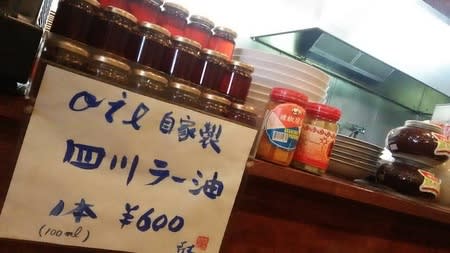 oil 自家製
四川ラー油
1本 ¥600
(100ml)